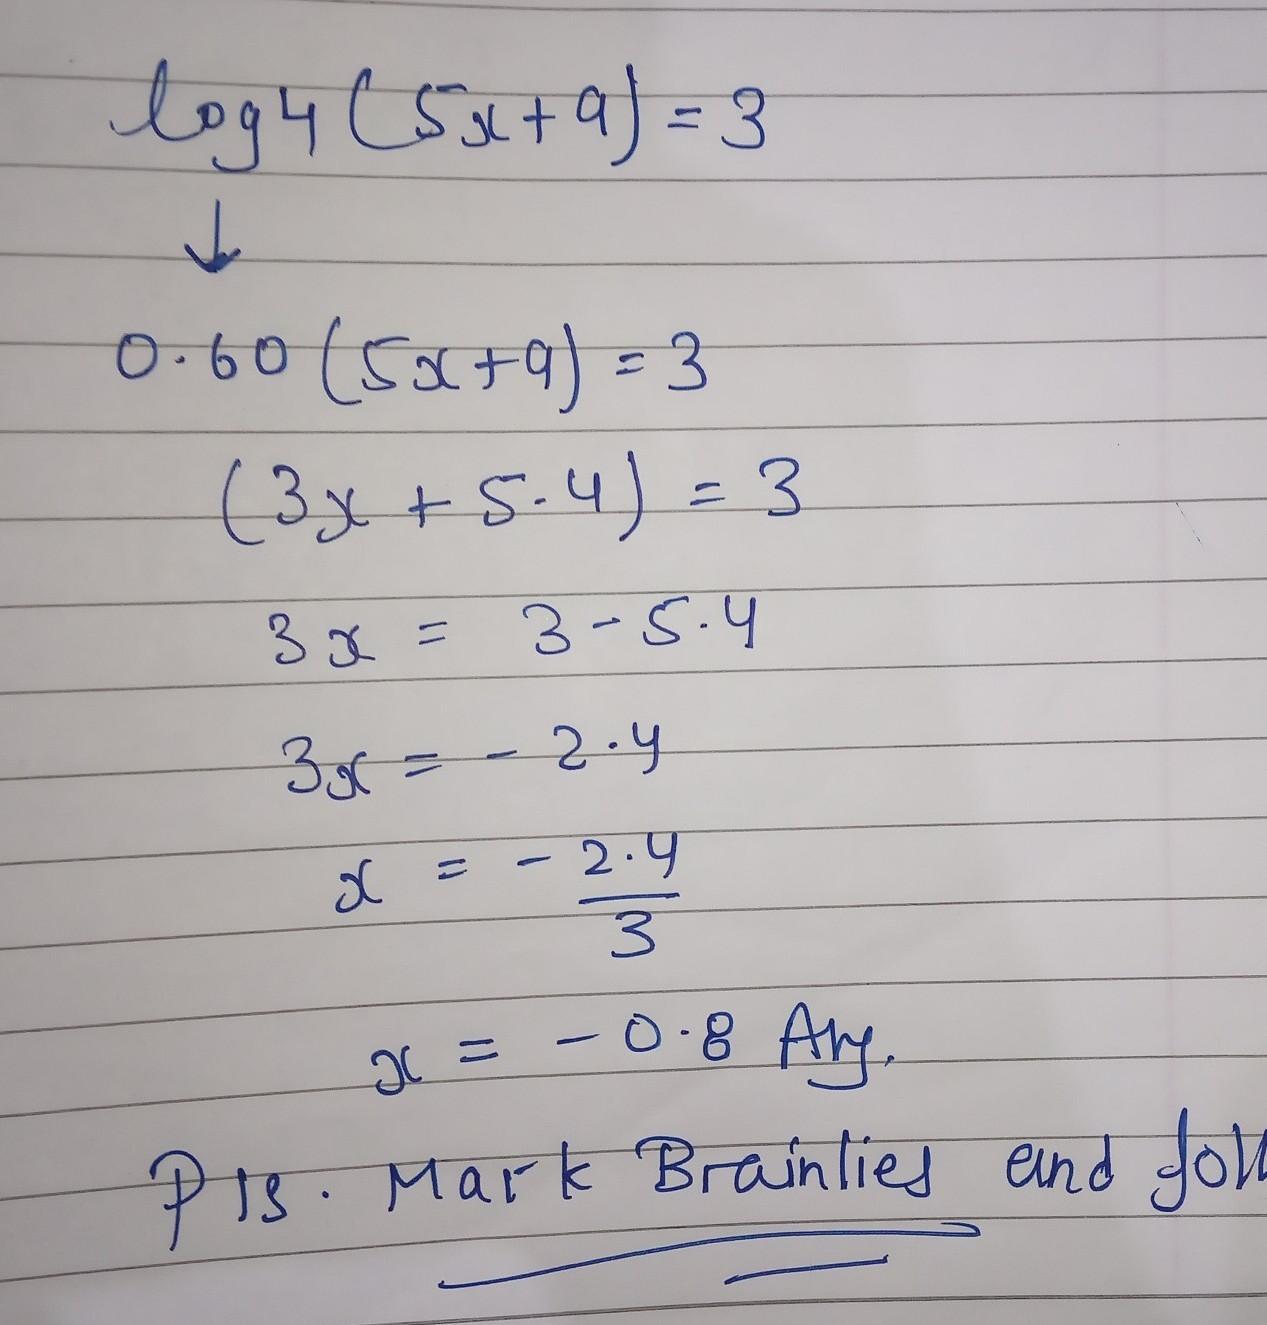 log4(5x+9)=3
↓
0.60(5x+9)=3
(3x+5.4)=3
3x = 3-5.4
3x = -2.4
x = -2.4/3
x = -0.8
Pls. Mark Brainlies and foll